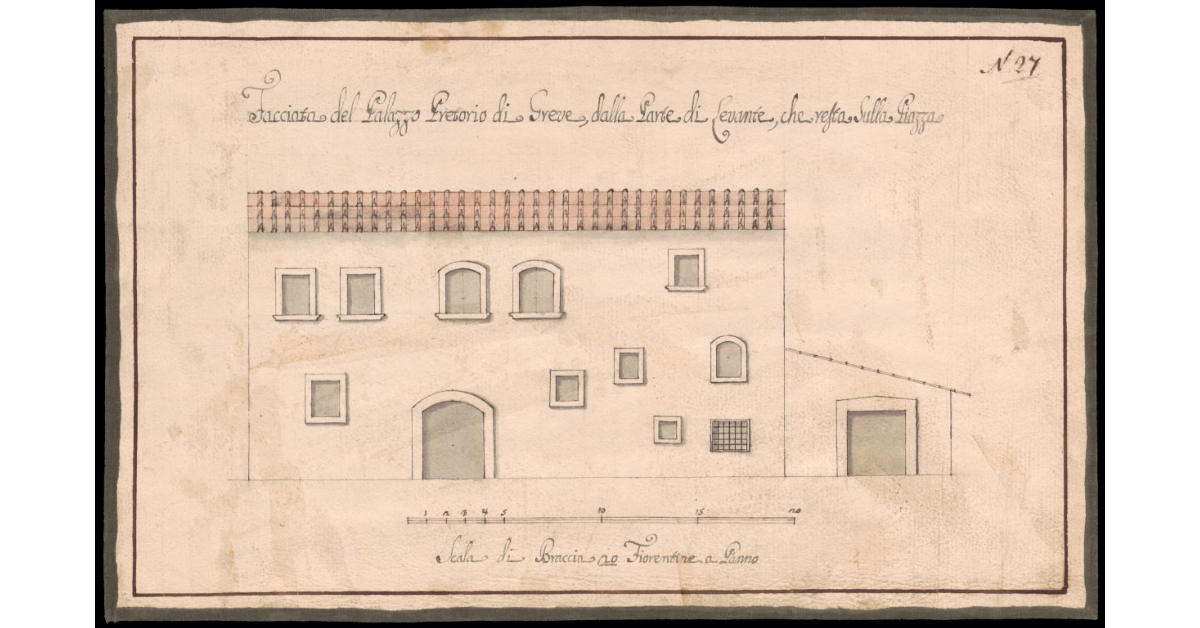 N. 27
Facciata del Palazzo Pretorio di Greve, dalla Parte di Levante, che resta Sulla Piazza
1 2 3 4 5 10 15 20
Scala di Braccia 20 Fiorentine a Panno